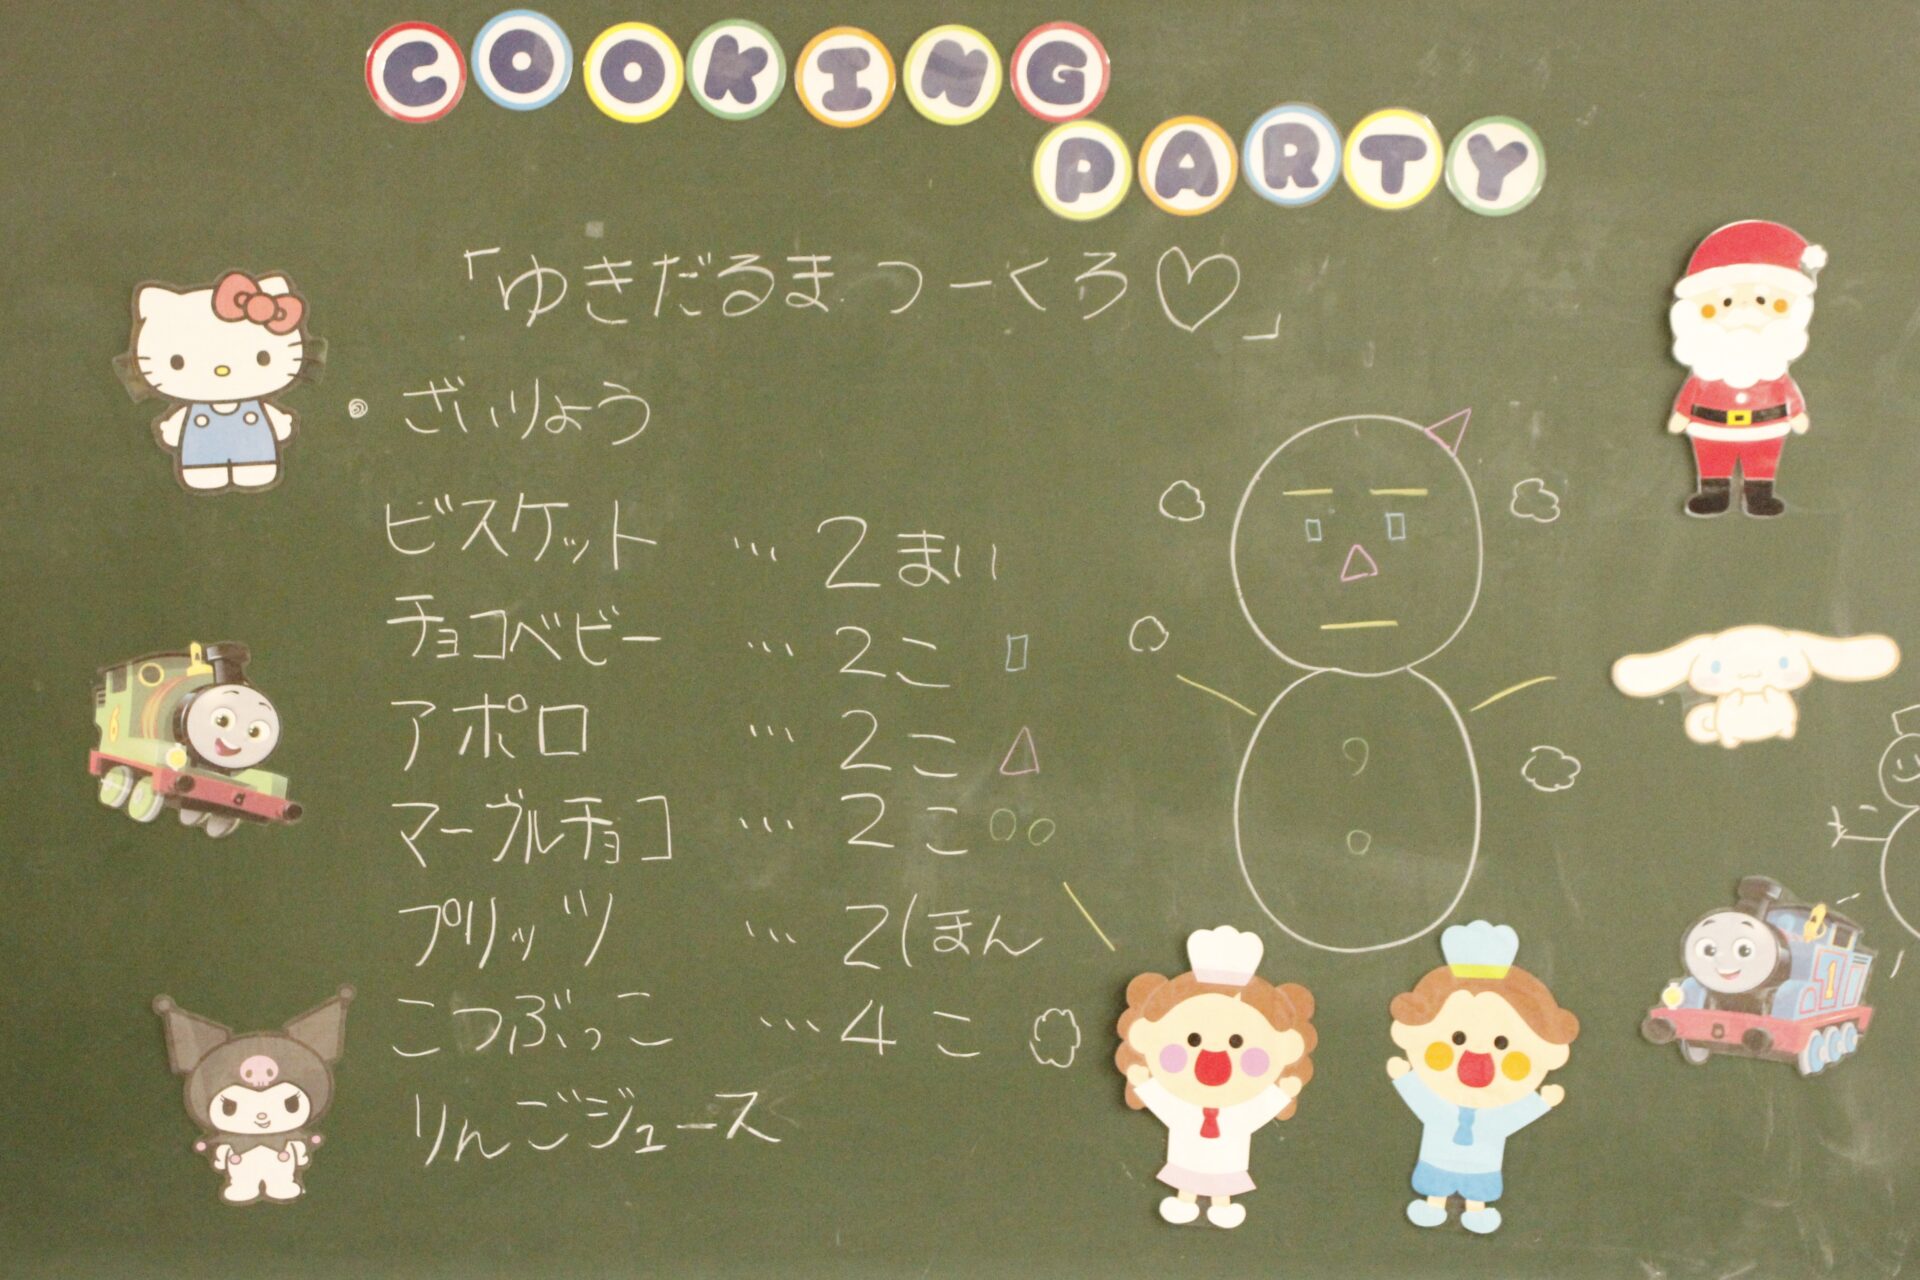 COOKING
PARTY
「ゆきだるまつーくろ♡」
◎ ざいりょう
ビスケット … 2まい
チョコベビー … 2こ
アポロ … 2こ
マーブルチョコ … 2こ
プリッツ … 2ほん
こつぶっこ … 4こ
りんごジュース